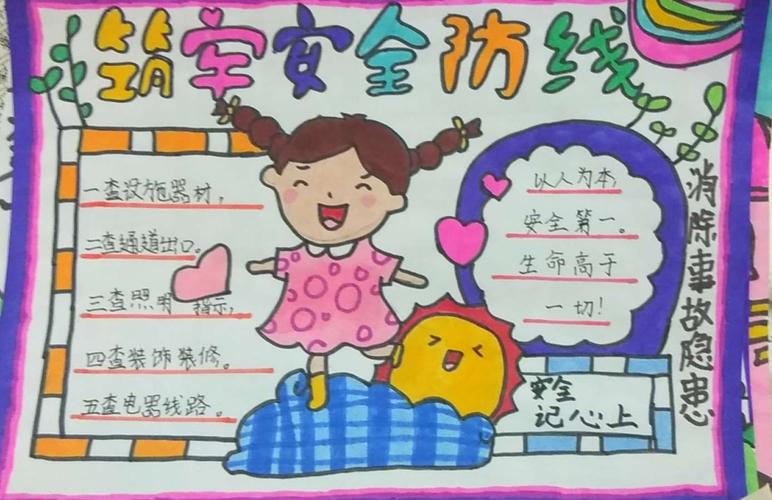 筑牢安全防线
一查设施器材，
二查通道出口。
三查照明 指示，
四查装饰装修。
五查电器线路。
以人为本，
安全第一。
生命高于
一切！
安全
记心上
消除事故隐患